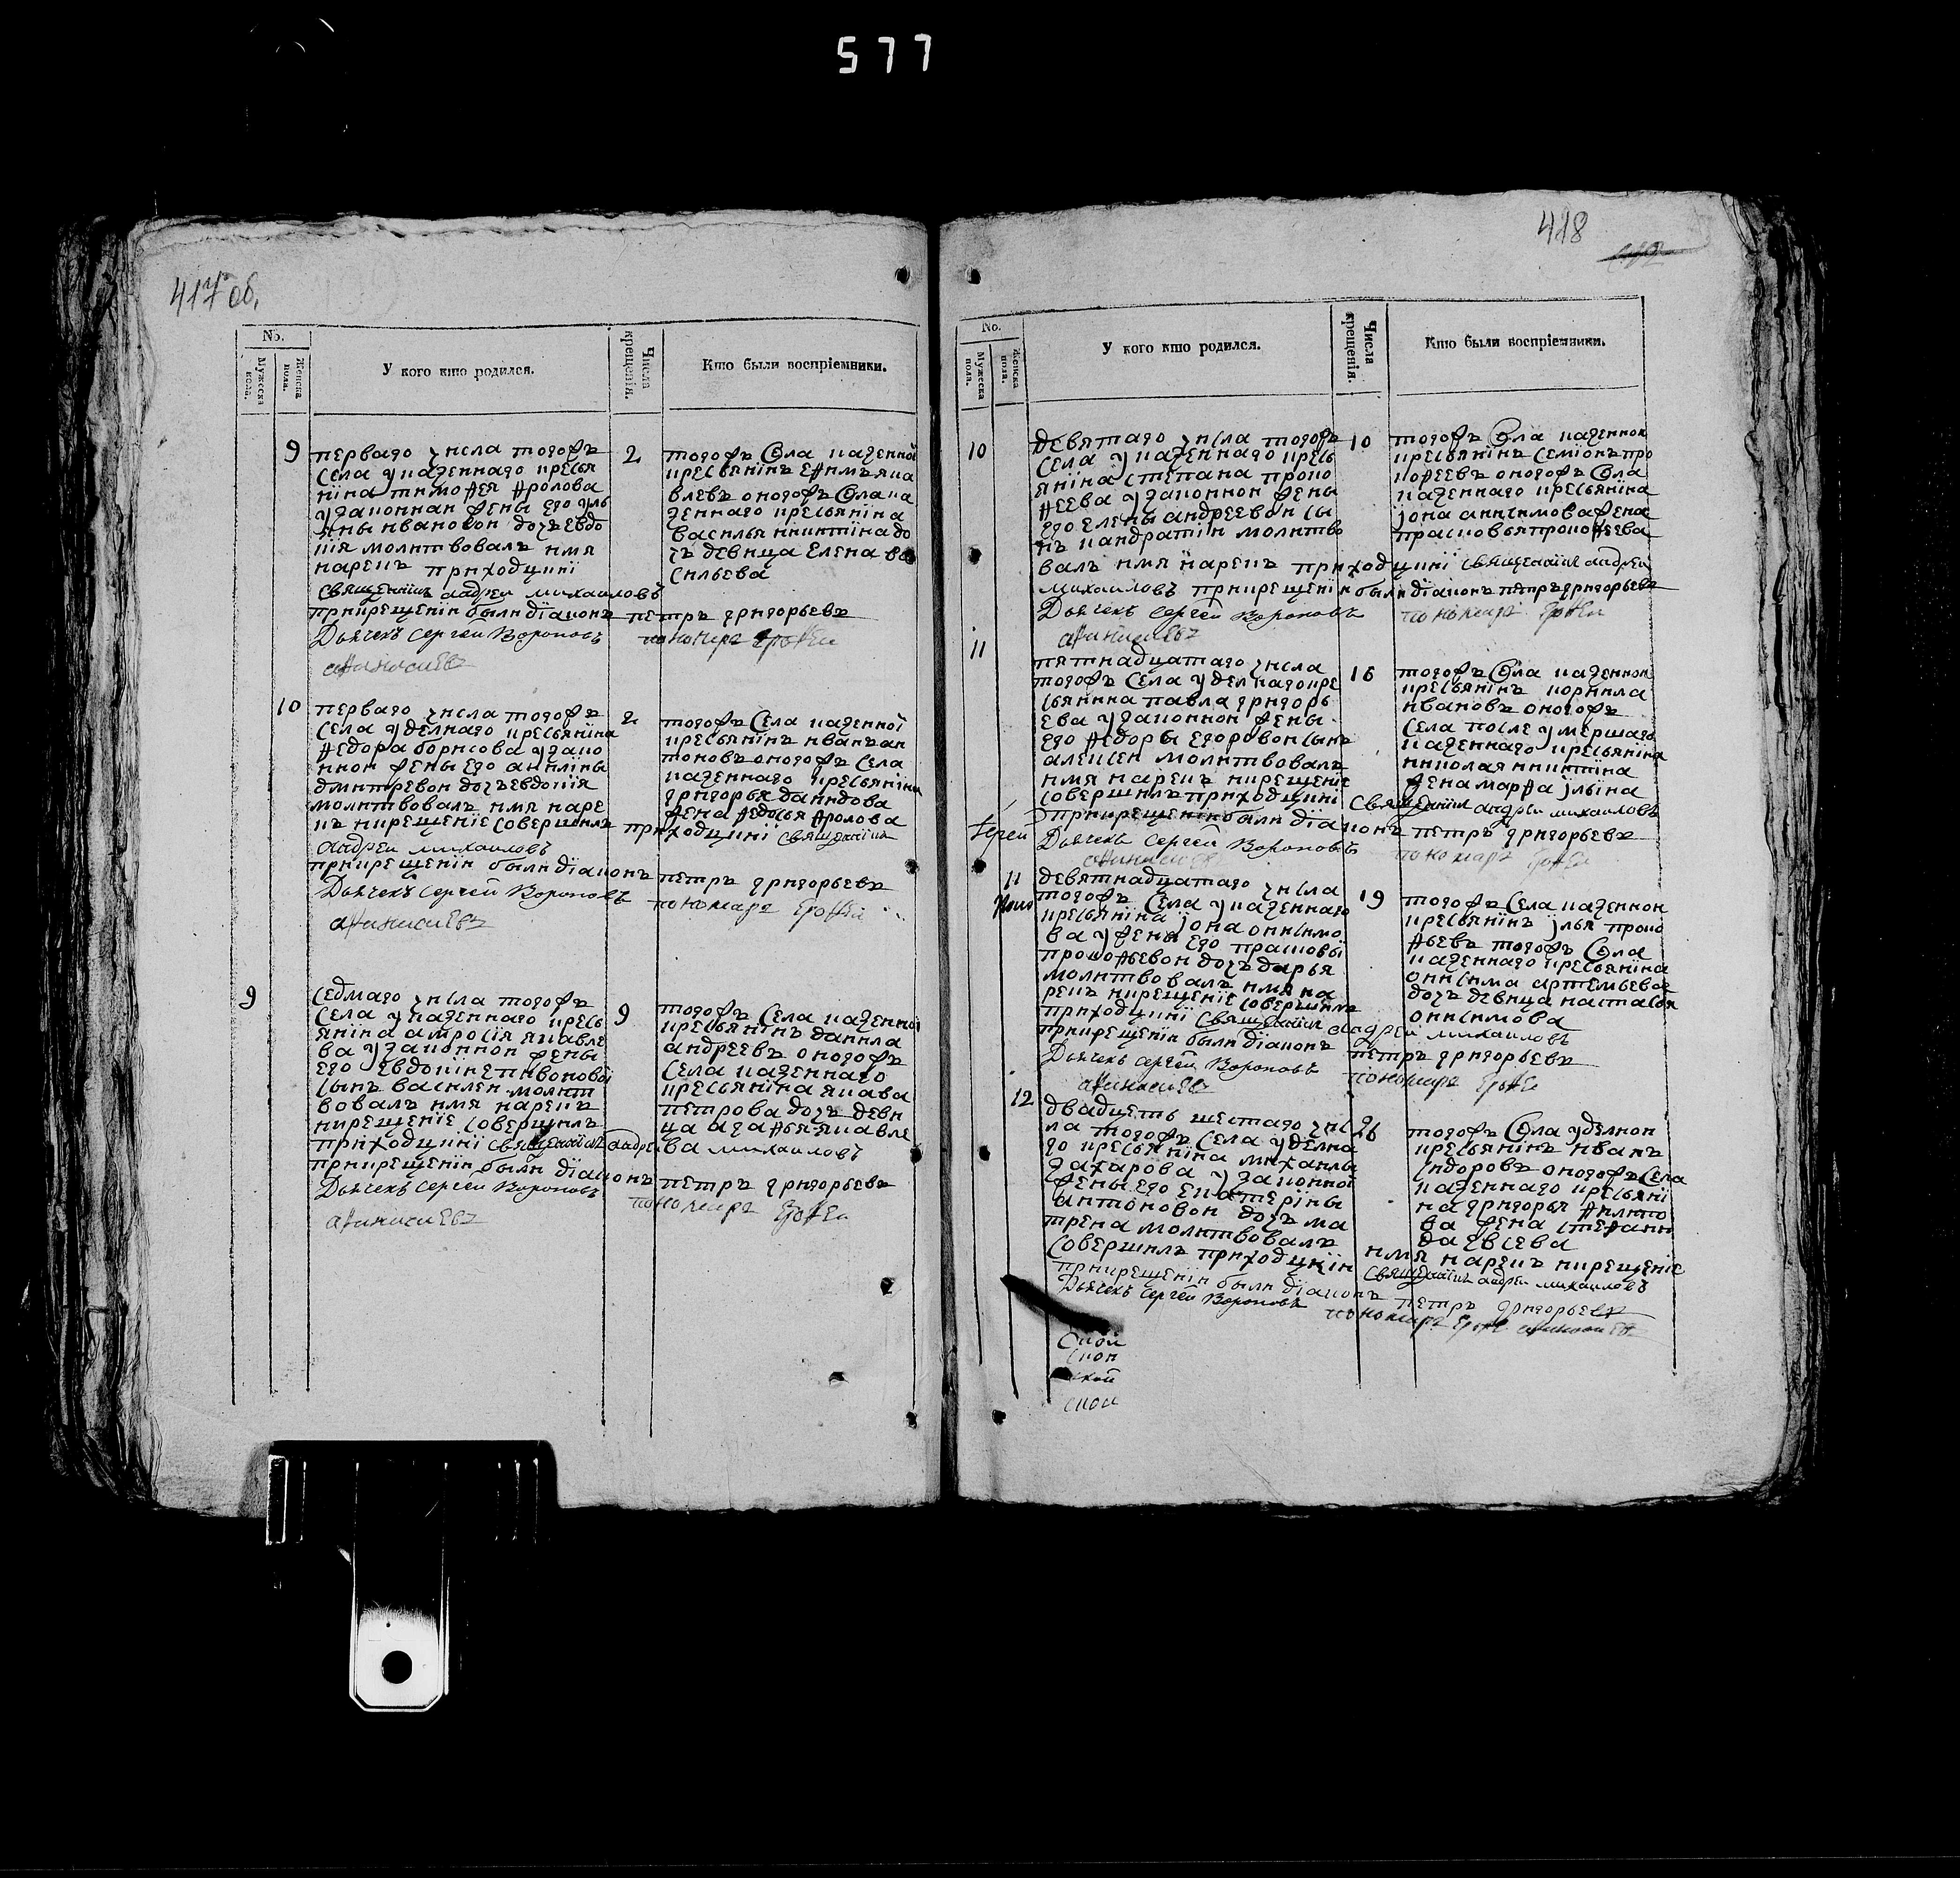 577
417 об.
No.
Мужеска пола.
Женска пола.
У кого кто родился.
Числа крещенія.
Кто были воспріемники.
9
перваго числа тогожъ
села указеннаго кресья
нїна тимоѳея ѳролова
узаконнаи жены его уль
яны ивановои дочь евдо
кія молитвовалъ имя
нарекъ приходцкїї
священникъ андреи михаиловъ
прикрещенїи были дїаконъ петръ григорьевъ
Дьячекъ Сергей Вороновъ пономарь Ероѳеи
аѳанасиевъ
2
тогожъ Села казенной
кресьянїнъ еѳимъ яка
влевъ оногожъ Села ка
зеннаго кресьянїна
василья никитїна до
чь девица Елена ва
сильева
10
перваго числа тогожъ
села уделнаго кресьянїна
ѳедора борисова узако
ннои жены его акилїны
дмитревои дочь евдокїя
молитвовалъ имя наре
къ икрещенїе совершилъ приходцкїї священникъ
андреи михаиловъ
прикрещенїи были дїаконъ петръ григорьевъ
Дьячекъ Сергей Вороновъ пономарь Ероѳеи
аѳанасиевъ
2
тогожъ Села казенной
кресьянїнъ иванъ ан
тоновъ оногожъ села
казеннаго кресьянїна
григорья давидова
жена ѳедосья ѳролова
9
седмаго числа тогожъ
села указеннаго кресь
янїна амросїя якавле
ва узаконнои жены
его евдокїи спивоновои
сынъ василеи молит
вовалъ имя нарекъ
икрещенїе совершилъ
приходцкїї священникъ андреи михаиловъ
прикрещенїи были дїаконъ петръ григорьевъ
Дьячекъ Сергей Вороновъ пономарь Ероѳеи
аѳанасиевъ
9
тогожъ Села казенной
кресьянїнъ данила
андреевъ оногожъ
села казеннаго
кресьянїна якава
петрова дочь деви
ца агаѳья якавле
ва
418
No.
Мужеска пола.
Женска пола.
У кого кто родился.
Числа крещенія.
Кто были воспріемники.
10
девятаго числа тогожъ
села указеннаго кресь
янїна степана проко
ѳеева узаконнои жены
его елены андреевои сы
нъ кандратїи молитво
валъ имя нарекъ приходцкїї священникъ андреи
михаиловъ прикрещенїи были дїаконъ петръ григорьевъ
Дьячекъ Сергей Вороновъ пономарь Ероѳеи
аѳанасиевъ
10
тогожъ Села казеннои
кресьянїнъ семїонъ про
коѳеевъ оногожъ Села
казеннаго кресьянїна
јона аникимова жена
прасковья прокоѳеева
11
пятнадцатаго числа
тогожъ села уделнаго кре
сьянина павла григорь
ева узаконнои жены
его ѳедоры егоровои сынъ
алексеи молитвовалъ
имя нарекъ икрещенїе
совершилъ приходцкїї священникъ андреи михаиловъ
прикрещенїи были дїаконъ петръ григорьевъ
Дьячекъ Сергей Вороновъ пономарь Ероѳеи
аѳанасиевъ
16
тогожъ Села казеннои
кресьянїнъ корнила
ивановъ оногожъ
села после умершаго
казеннаго кресьянїна
николая никитїна
жена марѳа јлїина
11
девятнадцатаго числа
тогожъ Села указеннаго
кресьянїна јона онисимо
ва ужены его прасковьї
прокоѳьевои дочь дарья
молитвовалъ имя на
рекъ икрещенїе совершилъ
приходцкїї священникъ андреи михаиловъ
прикрещенїи были дїаконъ петръ григорьевъ
Дьячекъ Сергей Вороновъ пономарь Ероѳеи
аѳанасиевъ
19
тогожъ Села казеннои
кресьянїнъ јлья проко
ѳьевъ тогожъ Села
казеннаго кресьянїна
онисима артемьева
дочь девица настасья
онисимова
12
двадцеть шестаго чис
ла тогожъ села уделна
го кресьянїна михаилы
захарова узаконнои
жены его екатерїны
антоновои дочь ма
трена молитвовалъ имя нарекъ икрещенїе
совершилъ приходцкїи священникъ андреи михаиловъ
прикрещенїи были дїаконъ петръ григорьевъ
Дьячекъ Сергей Вороновъ пономарь Ероѳе аѳанасиевъ
26
тогожъ Села уделнои
кресьянїнъ иванъ
сидоровъ оногожъ Села
казеннаго кресьянї
на григорья ѳилипо
ва жена степани
да евсева
Скои
скои
ской
скои